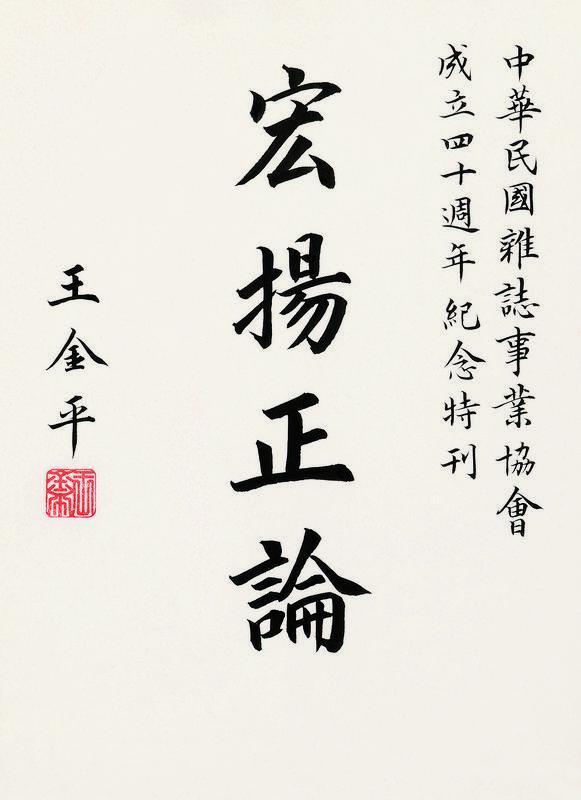 中華民國雜誌事業協會
成立四十週年紀念特刊
宏揚正論
王金平